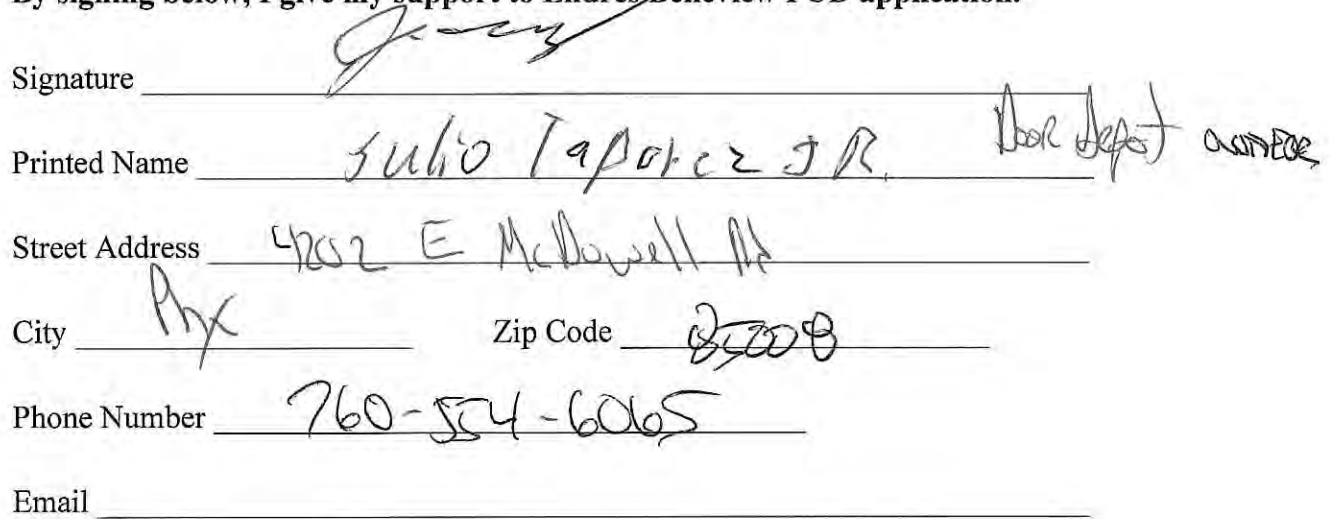 By signing below, I give my support to Endres Belleview PUD application.
Signature
Printed Name Julio Taporcz JR. Door Depot OWNEOR
Street Address 4202 E McDowell Rd
City Phx Zip Code 85008
Phone Number 760-554-6065
Email